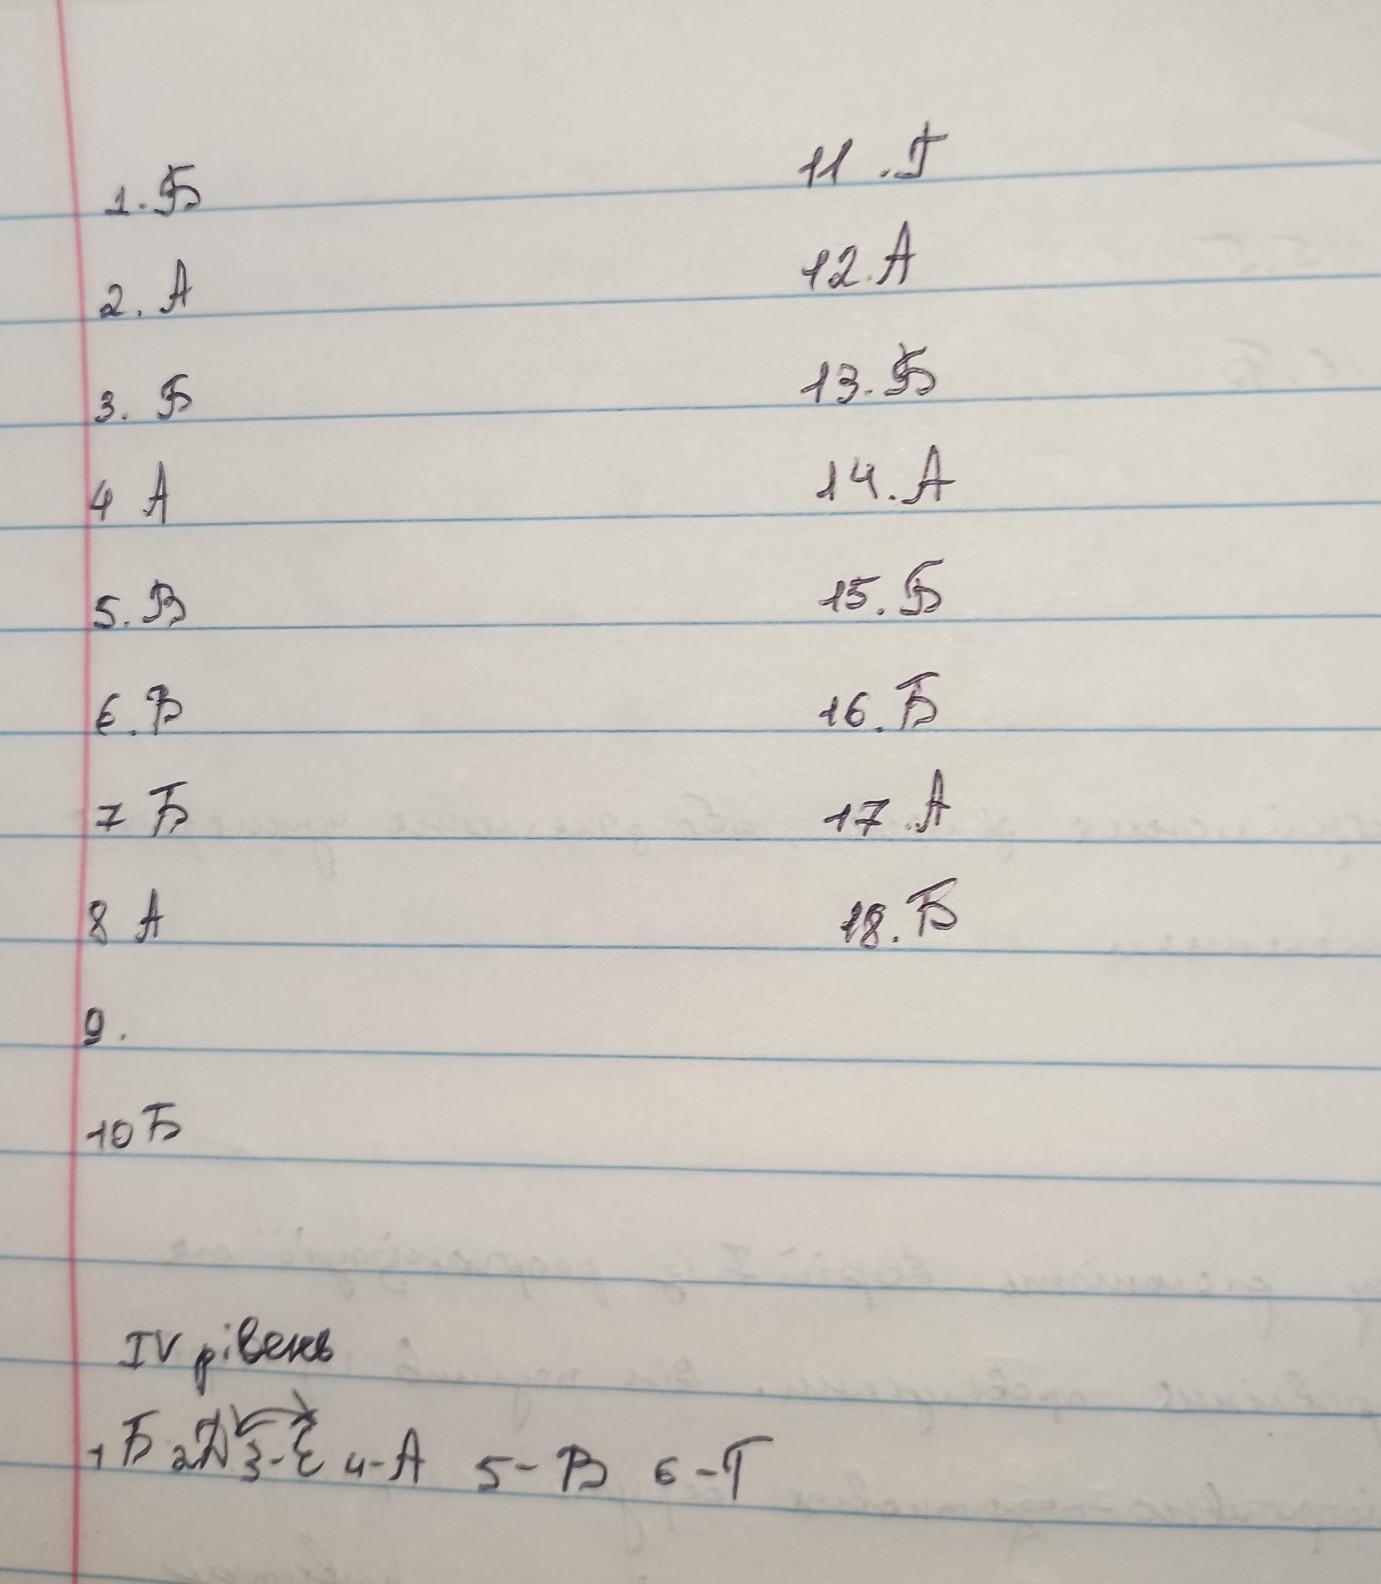 1. Б
2. А
3. Б
4 А
5. В
6. В
7 Б
8 А
9.
10 Б
11. Г
12. А
13. Б
14. А
15. Б
16. Б
17. А
18. Б
IV рівень
1 Б 2 Д 3-Є 4-А 5-В 6-Г